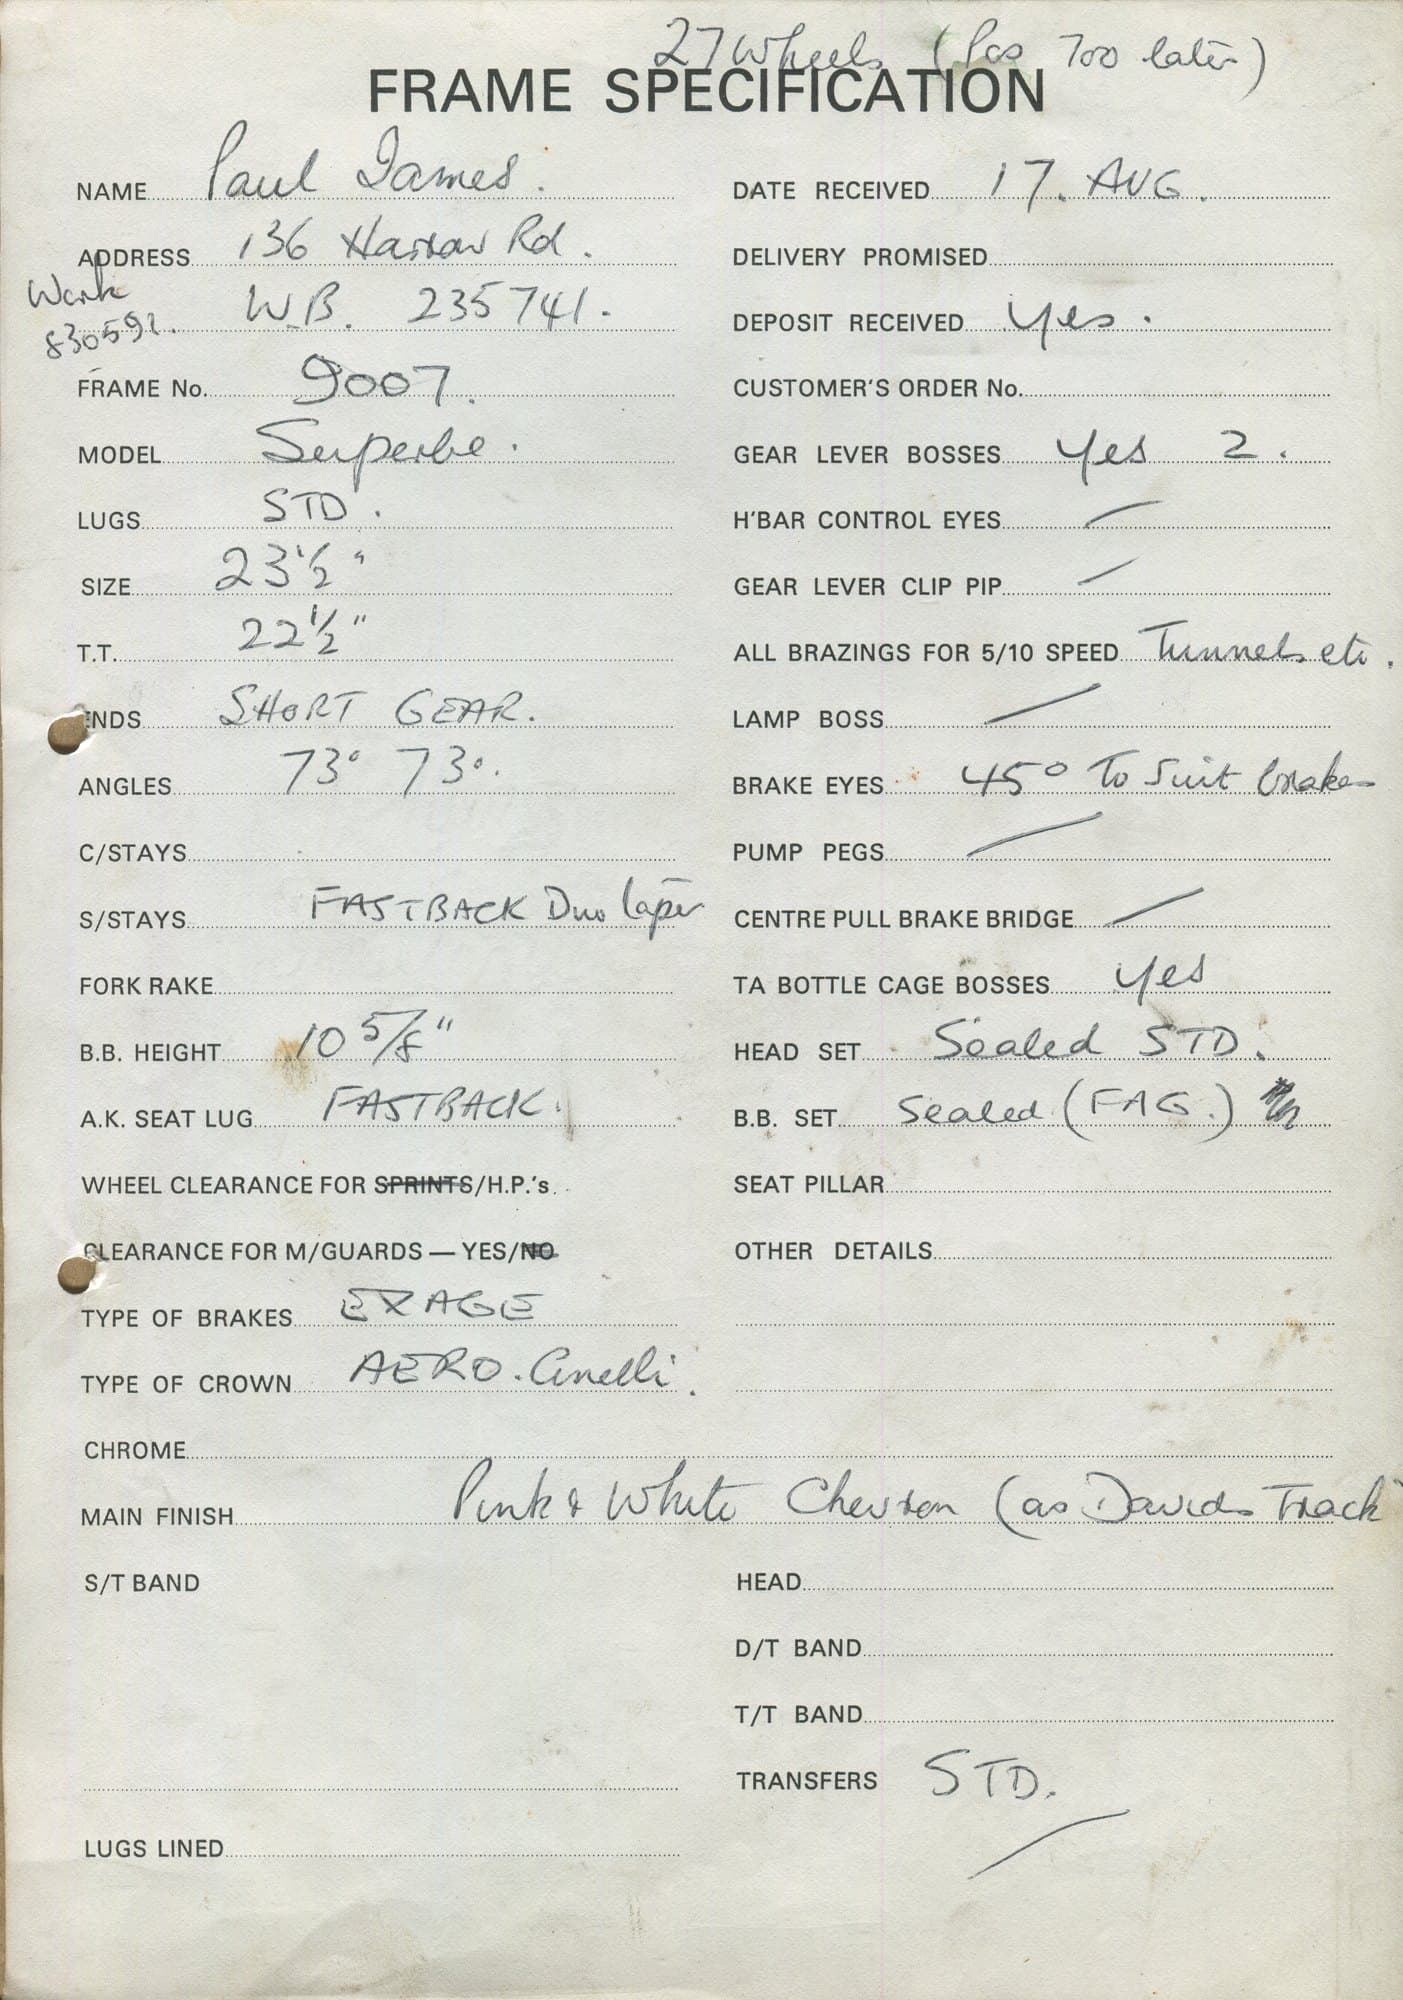 27 Wheels (Pos 700 later)
FRAME SPECIFICATION
NAME Paul James.
ADDRESS 136 Harrow Rd.
W.B. 235741.
Work
830591.
FRAME No. 9007.
MODEL Superbe.
LUGS STD.
SIZE 23½"
T.T. 22½"
ENDS SHORT GEAR.
ANGLES 73° 73°.
C/STAYS
S/STAYS FASTBACK Duo taper
FORK RAKE
B.B. HEIGHT 10 5/8"
A.K. SEAT LUG FASTBACK.
WHEEL CLEARANCE FOR SPRINTS/H.P.'s
CLEARANCE FOR M/GUARDS — YES/NO
TYPE OF BRAKES EXAGE
TYPE OF CROWN AERO. Cinelli.
DATE RECEIVED 17. AUG.
DELIVERY PROMISED
DEPOSIT RECEIVED Yes.
CUSTOMER'S ORDER No.
GEAR LEVER BOSSES Yes 2.
H'BAR CONTROL EYES —
GEAR LEVER CLIP PIP —
ALL BRAZINGS FOR 5/10 SPEED Tunnels etc.
LAMP BOSS —
BRAKE EYES 45° To Suit brakes
PUMP PEGS —
CENTRE PULL BRAKE BRIDGE —
TA BOTTLE CAGE BOSSES Yes
HEAD SET Sealed STD.
B.B. SET Sealed (FAG.)
SEAT PILLAR
OTHER DETAILS
CHROME
MAIN FINISH Pink & White Chevron (as Davids Track
S/T BAND
LUGS LINED
HEAD
D/T BAND
T/T BAND
TRANSFERS STD.